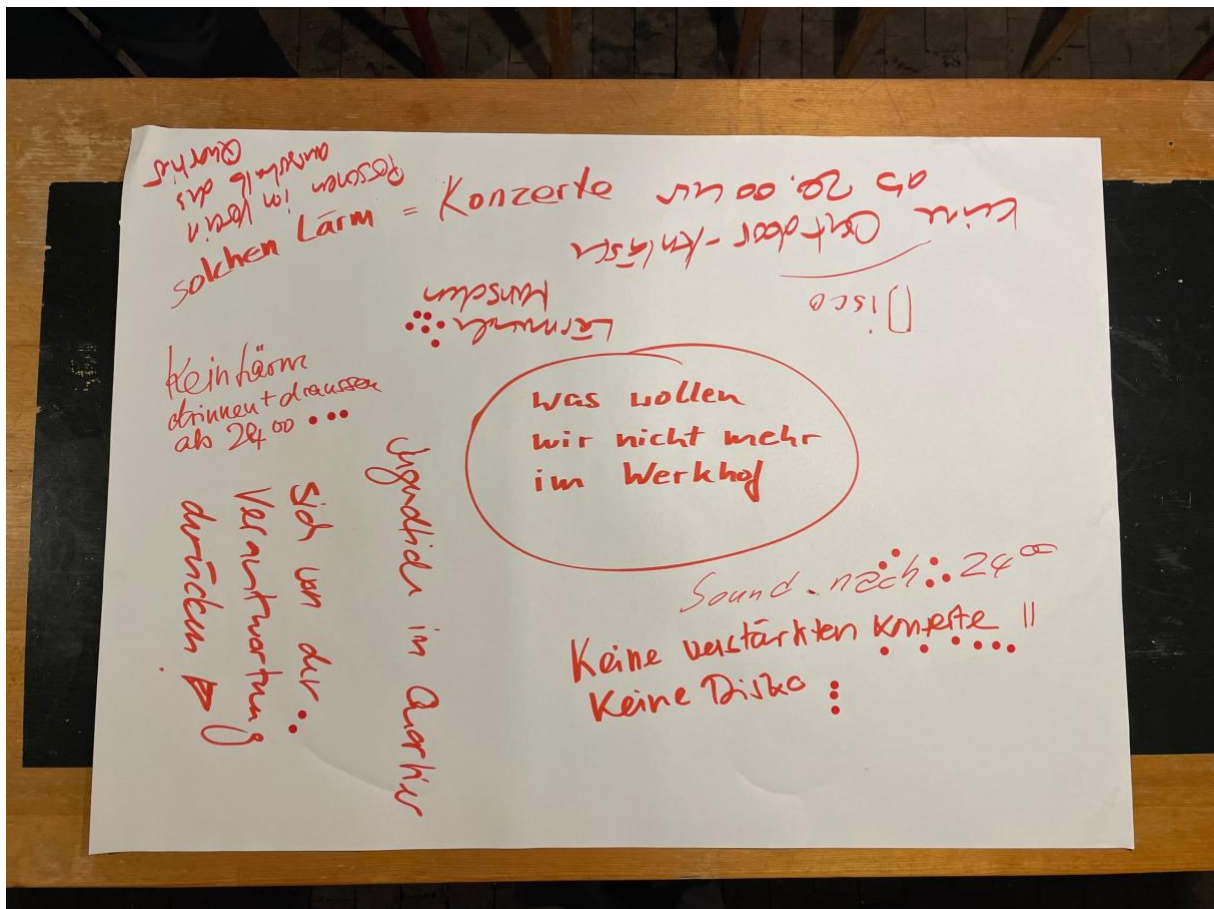 was wollen
wir nicht mehr
im Werkhof
Personen im Verein
ausshalb des
Quartier
solchen Lärm = Konzerte
Keine Outdoor-Anlässe
ab 20.00 Uhr
Disco
Lärmende
Menschen
Kein Lärm
drinnen + draussen
ab 24 00
Sich von der
Verantwortung
drücken!
Jugendliche in Quartier
Sound nach 24 00
Keine verstärkten Konzerte !!
Keine Disko